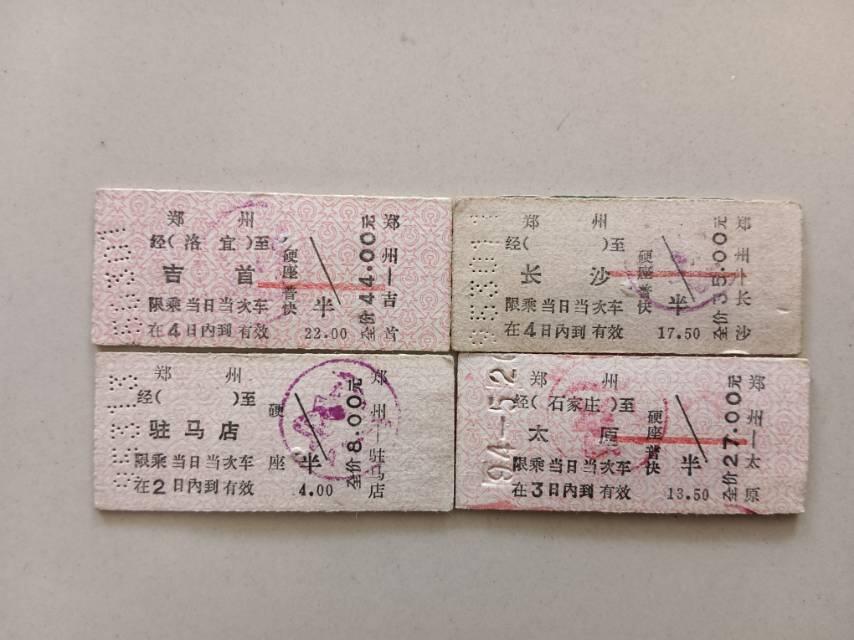 郑 州
经( 洛 宜 )至
吉 首
限乘当日当次车
在4日内到有效
硬座普快
半
22.00
全价44.00元
郑州—吉首
郑 州
经( )至
长 沙
限乘当日当次车
在4日内到有效
硬座普快
半
17.50
全价35.00元
郑州—长沙
郑 州
经( )至
驻马店
限乘当日当次车
在2日内到有效
硬座
半
4.00
全价8.00元
郑州—驻马店
郑 州
经( 石家庄 )至
太 原
限乘当日当次车
在3日内到有效
硬座普快
半
13.50
全价27.00元
郑州—太原